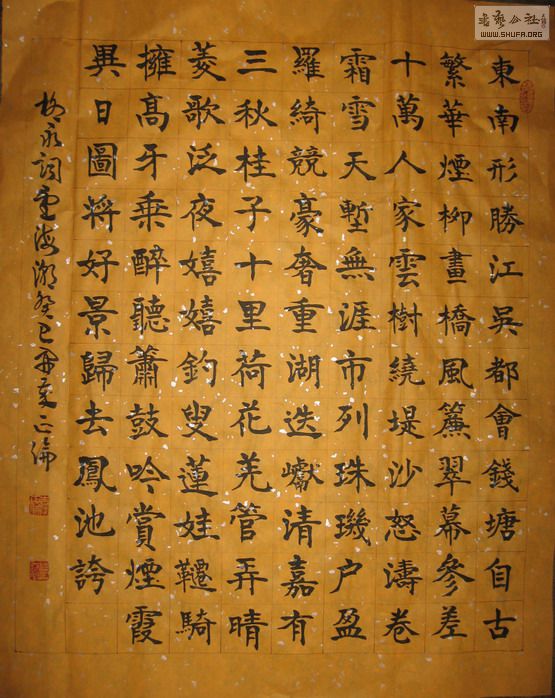 東南形勝江吳都會錢塘自古
繁華煙柳畫橋風簾翠幕參差
十萬人家雲樹繞堤沙怒濤卷
霜雪天塹無涯市列珠璣户盈
羅綺競豪奢重湖迭巘清嘉有
三秋桂子十里荷花羌管弄晴
菱歌泛夜嬉嬉釣叟蓮娃韆騎
擁高牙乘醉聽簫鼓吟賞煙霞
異日圖將好景歸去鳳池誇
柳永詞望海潮癸巳正倫
書藝公社
WWW.SHUFA.ORG